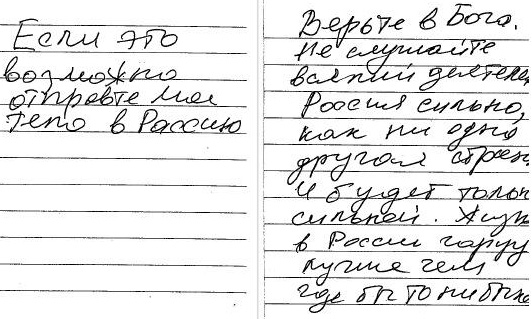 Если это
возможно
отправте мое
тело в Россию
Верьте в Бога.
Не слушайте
всякий деятеле
Россия сильно,
как ни одно
другая стран
И будет только
сильной. Жизн
в России гаруу
лучше чем
где бы то ни было